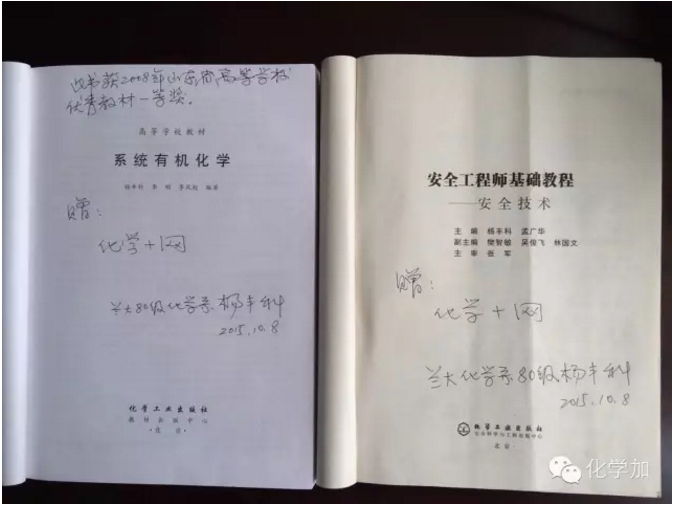 此书获2008年山东省高等学校
优秀教材一等奖.
高等学校教材
系统有机化学
杨丰科 李明 李风起 编著
赠:
化学+网
兰大80级化学系杨丰科
2015.10.8
化学工业出版社
教材出版中心
·北京·
安全工程师基础教程
——安全技术
主编 杨丰科 孟广华
副主编 樊智敏 吴俊飞 林国文
主审 张军
赠:
化学+网
兰大化学系80级杨丰科
2015.10.8
化学工业出版社
安全科学与工程出版中心
·北京·
化学加